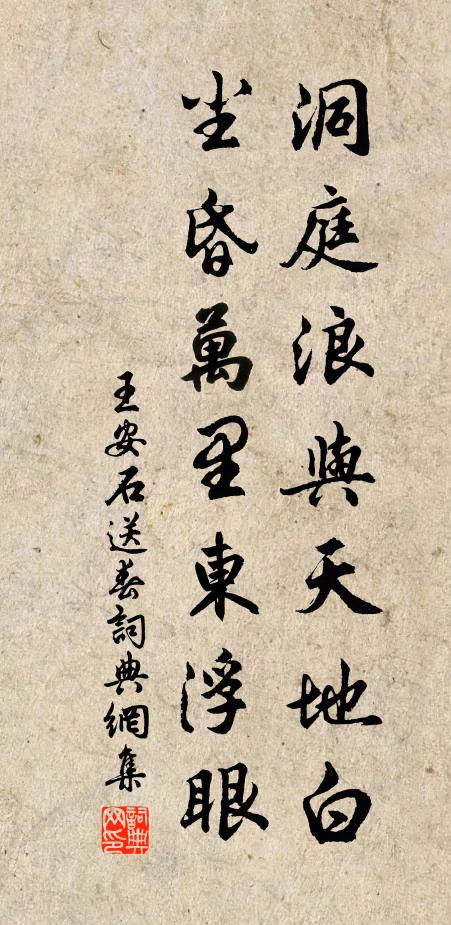 洞庭浪與天地白
尘昏萬里東浮眼
王安石送春詞典網集
詞典网印